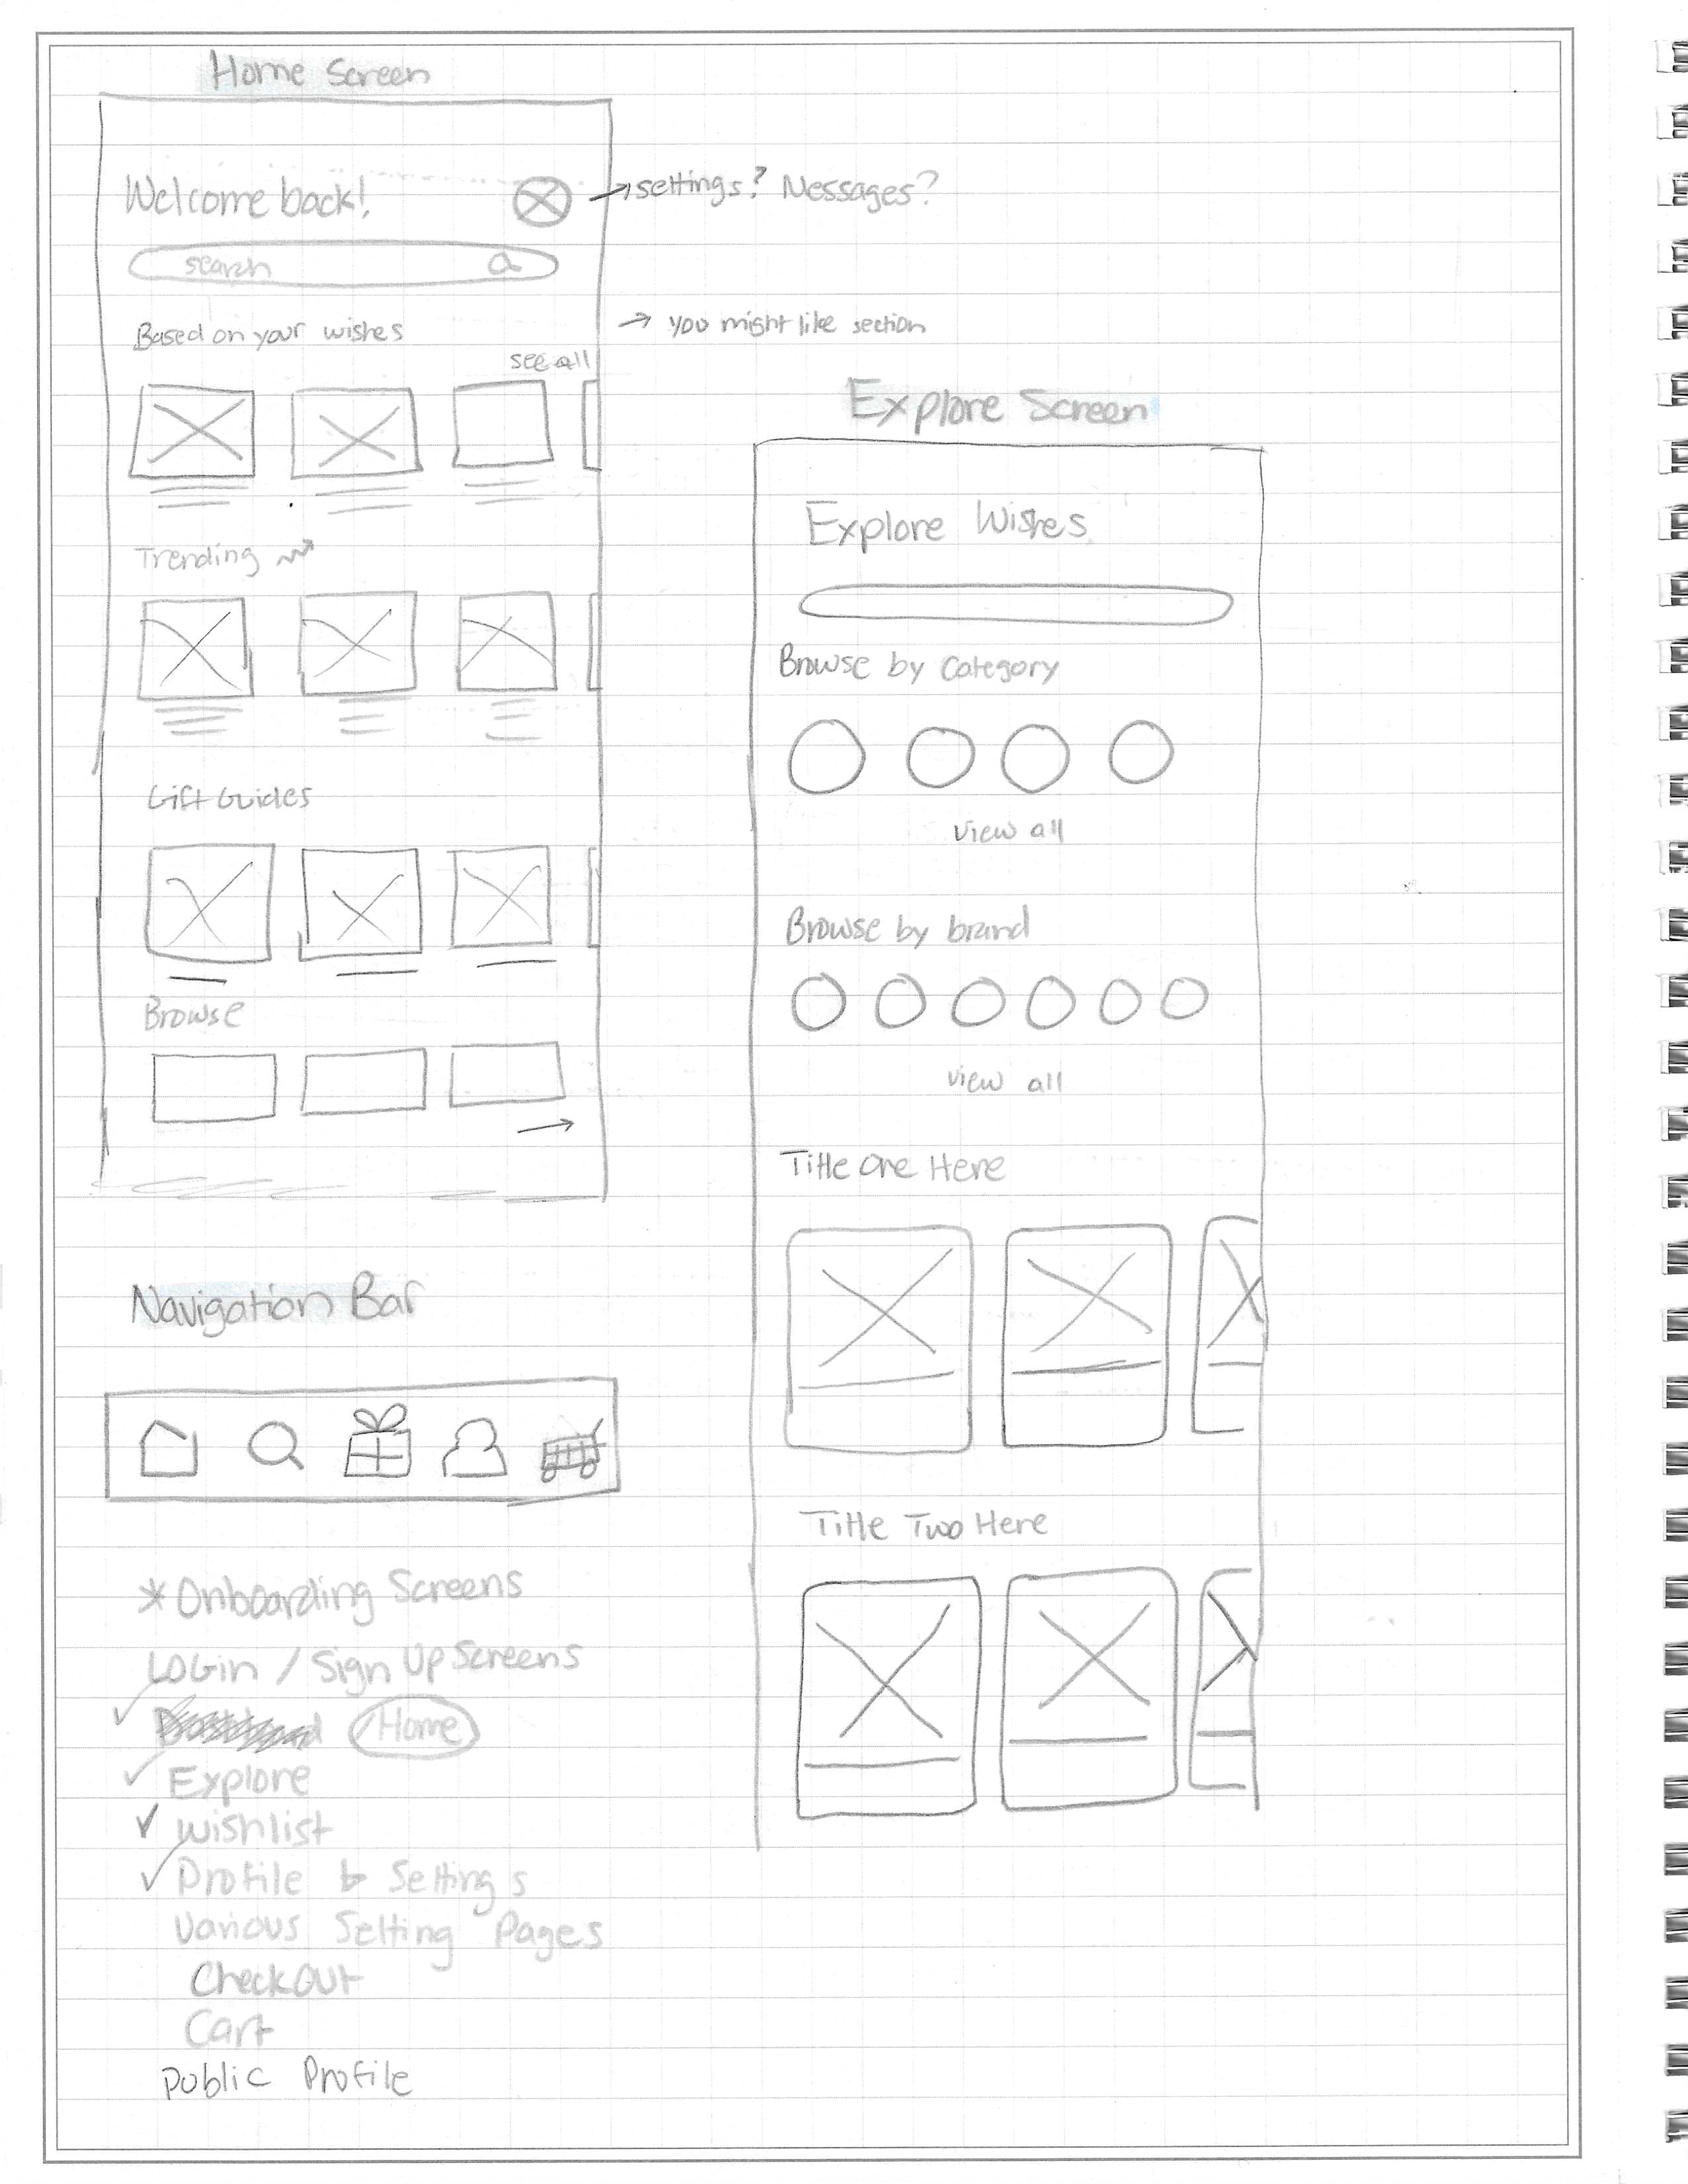 Home Screen
Welcome back!
→ settings? Messages?
search
Based on your wishes
→ you might like section
see all
Trending
Gift Guides
Browse
→
Navigation Bar
* Onboarding Screens
LOGin / Sign Up Screens
✓ Home
✓ Explore
✓ wishlist
✓ Profile & Settings
Various Setting Pages
CheckOUt
Cart
public Profile
Explore Screen
Explore Wishes
Browse by Category
view all
Browse by brand
view all
Title One Here
Title Two Here